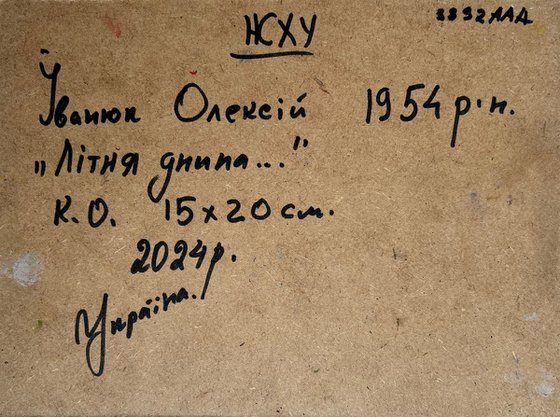 НСХУ
3892ААД
Іванюк Олексій 1954 р.н.
„Літня днина..."
К.О. 15х20 см.
2024р.
Україна.